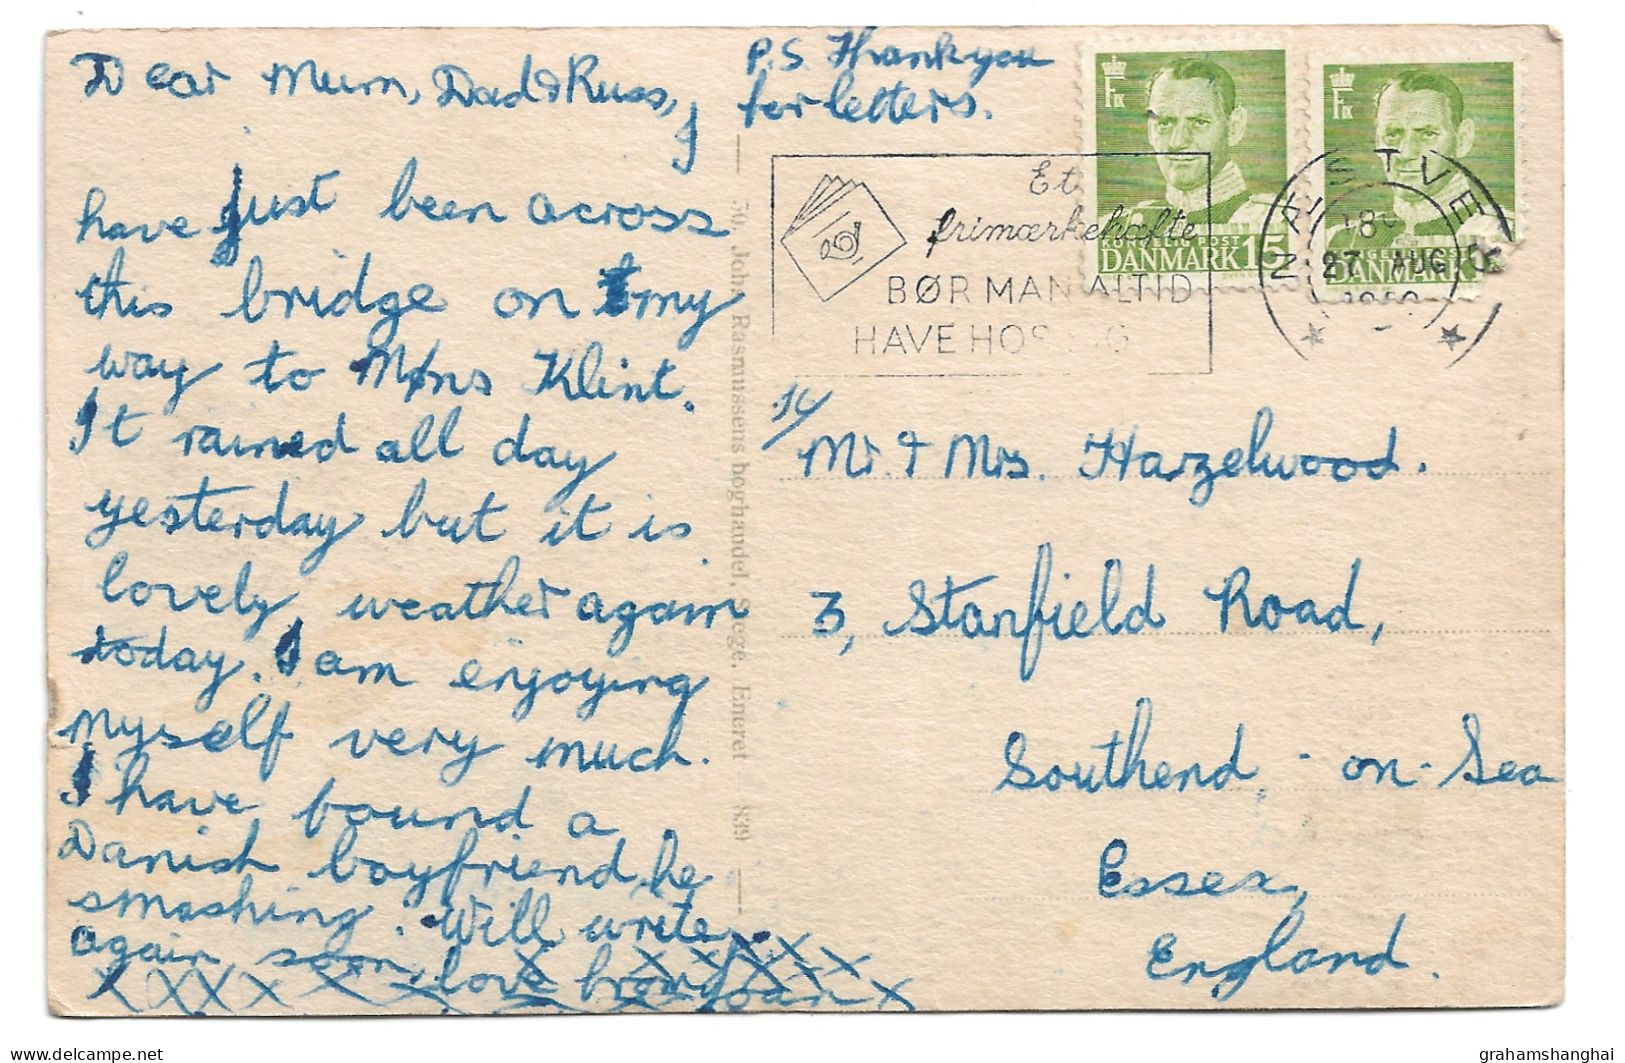 Dear Mum, Dad & Russ, I
have just been across
this bridge on my
way to Møns Klint.
It rained all day
yesterday but it is
lovely weather again
today. I am enjoying
myself very much.
I have bound a
Danish boyfriend, he
smashing. Will write
again soon, love from Joan
P.S. Thank you
for letters.
30, Johs Rasmussens boghandel, Stege. Eneret 839
Et
frimærkehæfte
BØR MAN ALTID
HAVE HOS SIG
KONGELIG POST
DANMARK 15
DANMARK
NÆSTVED
27 AUG
Mr. & Mrs. Hazelwood.
3, Stanfield Road,
Southend-on-Sea
Essex,
England.
delcampe.net
grahamshanghai